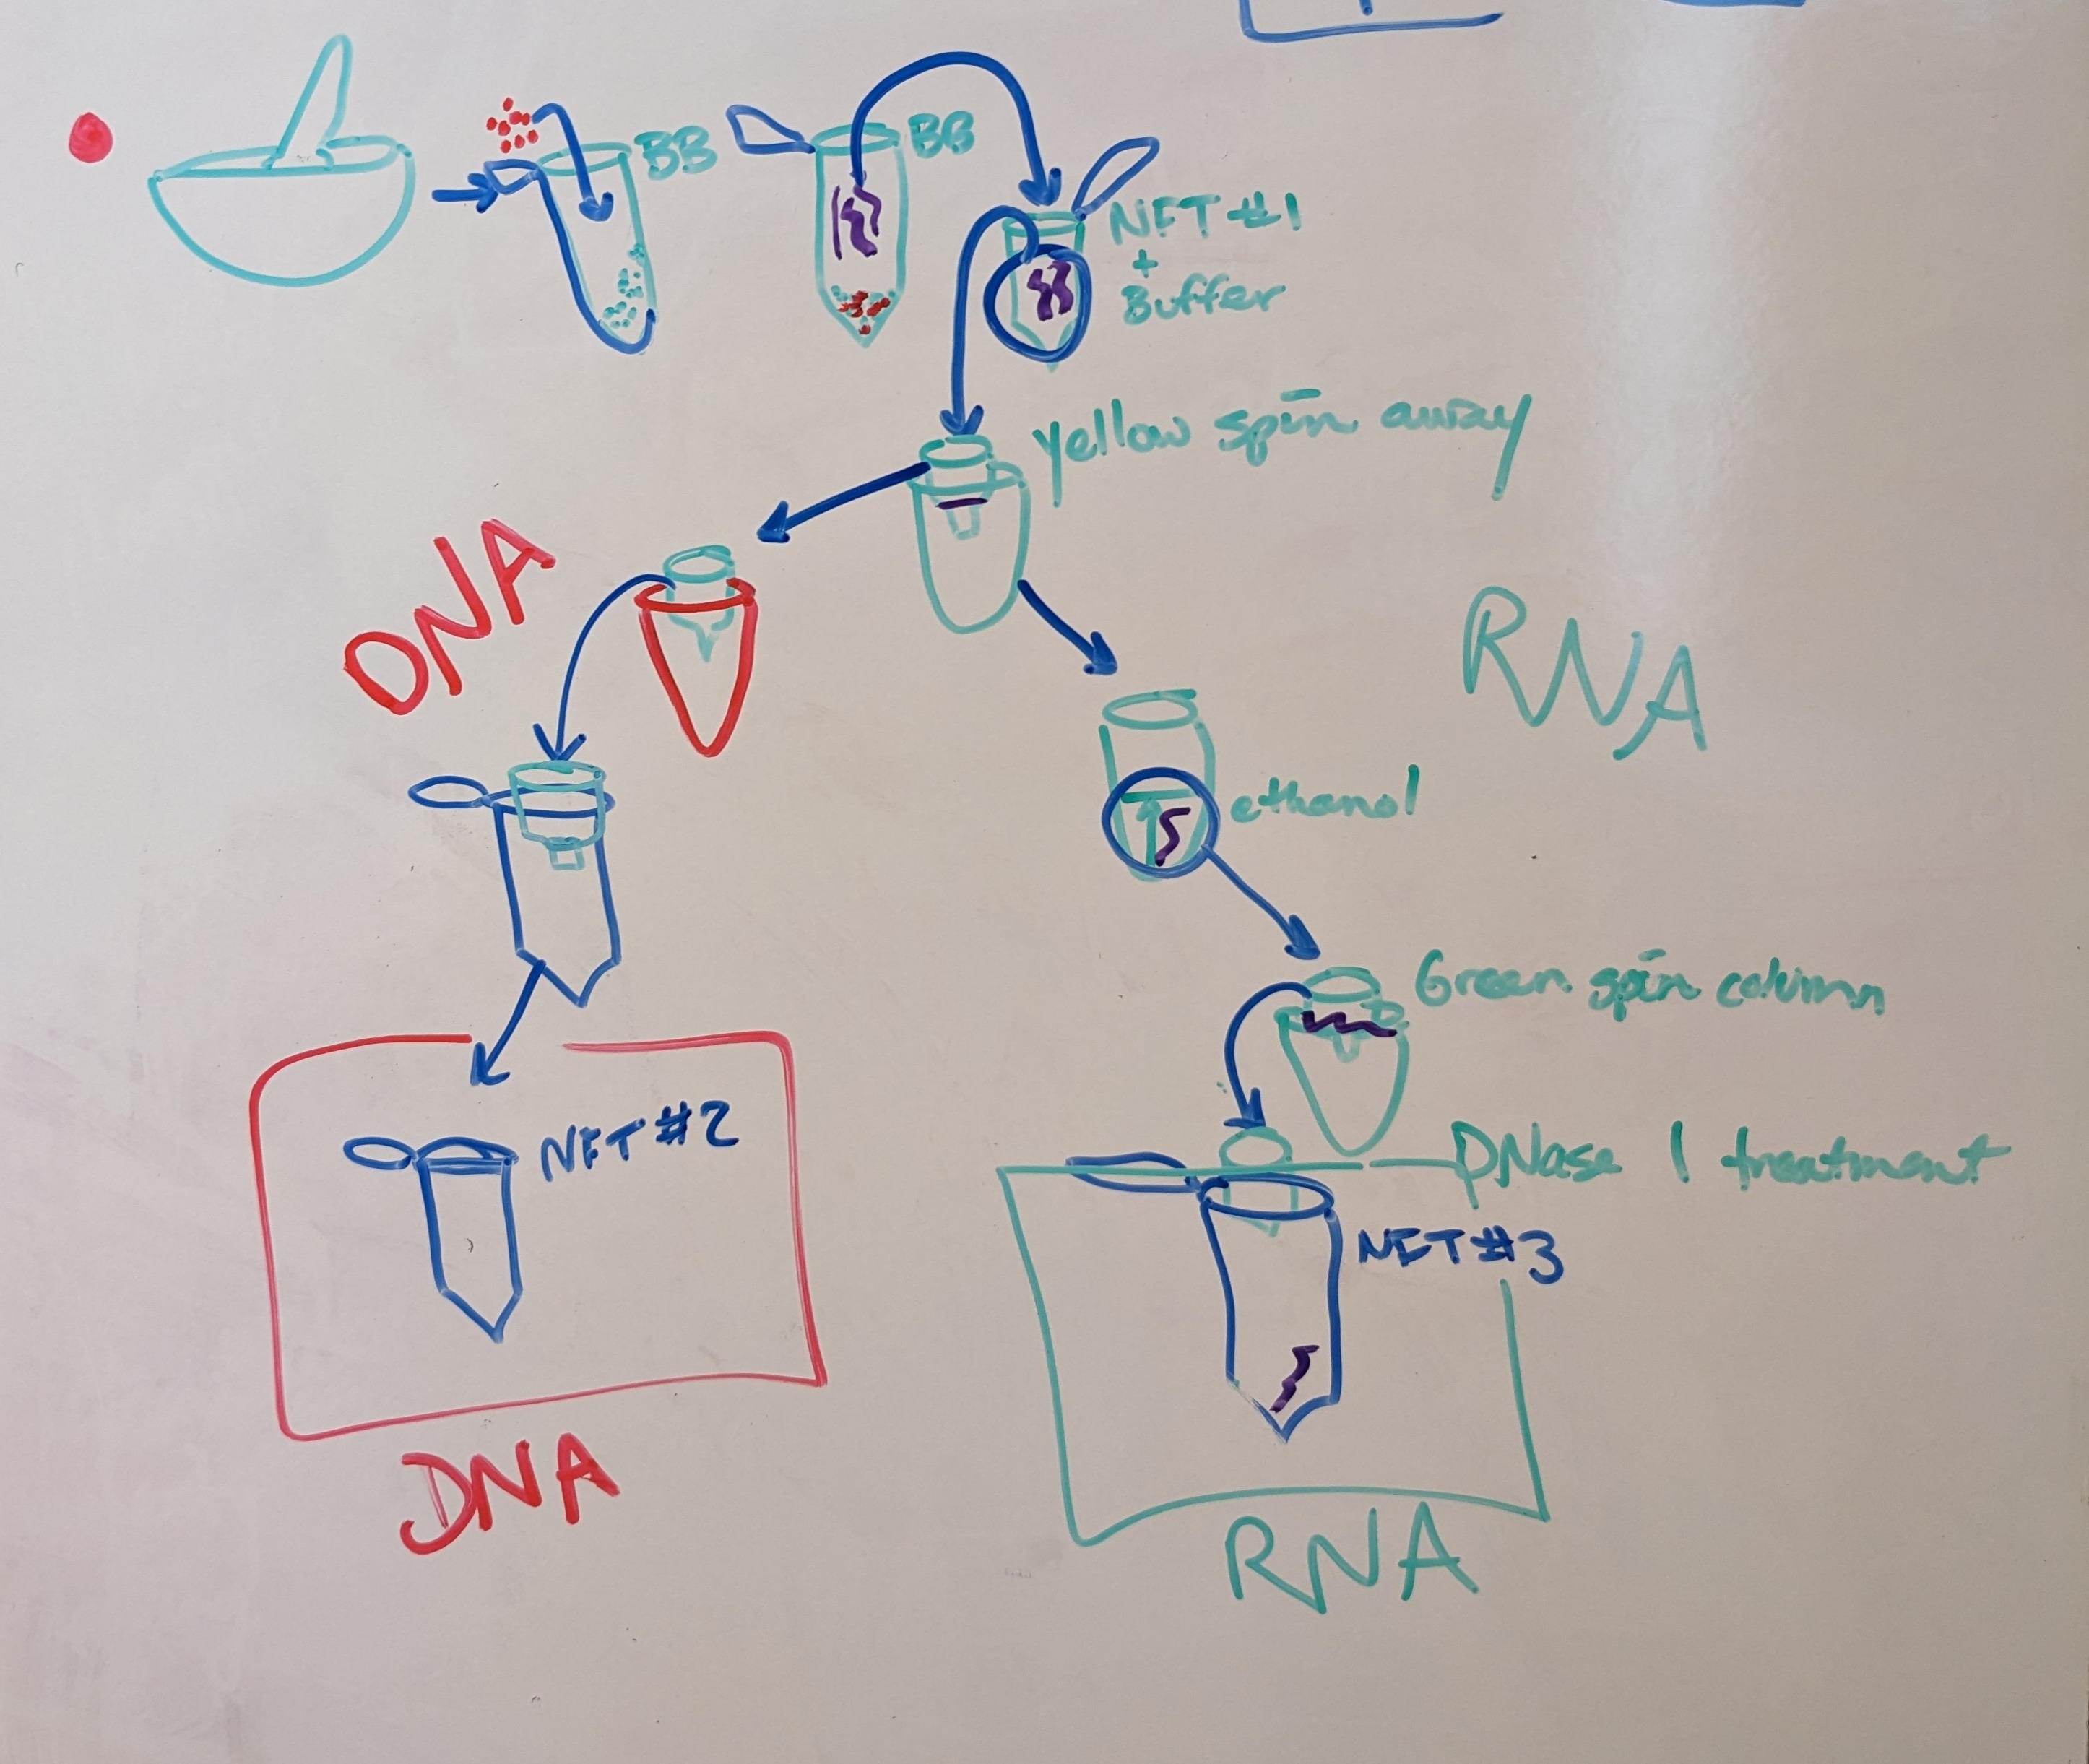 BB
BB
NFT #1
+
Buffer
yellow spin away
DNA
RNA
ethanol
Green spin column
NFT #2
DNase 1 treatment
NFT #3
DNA
RNA